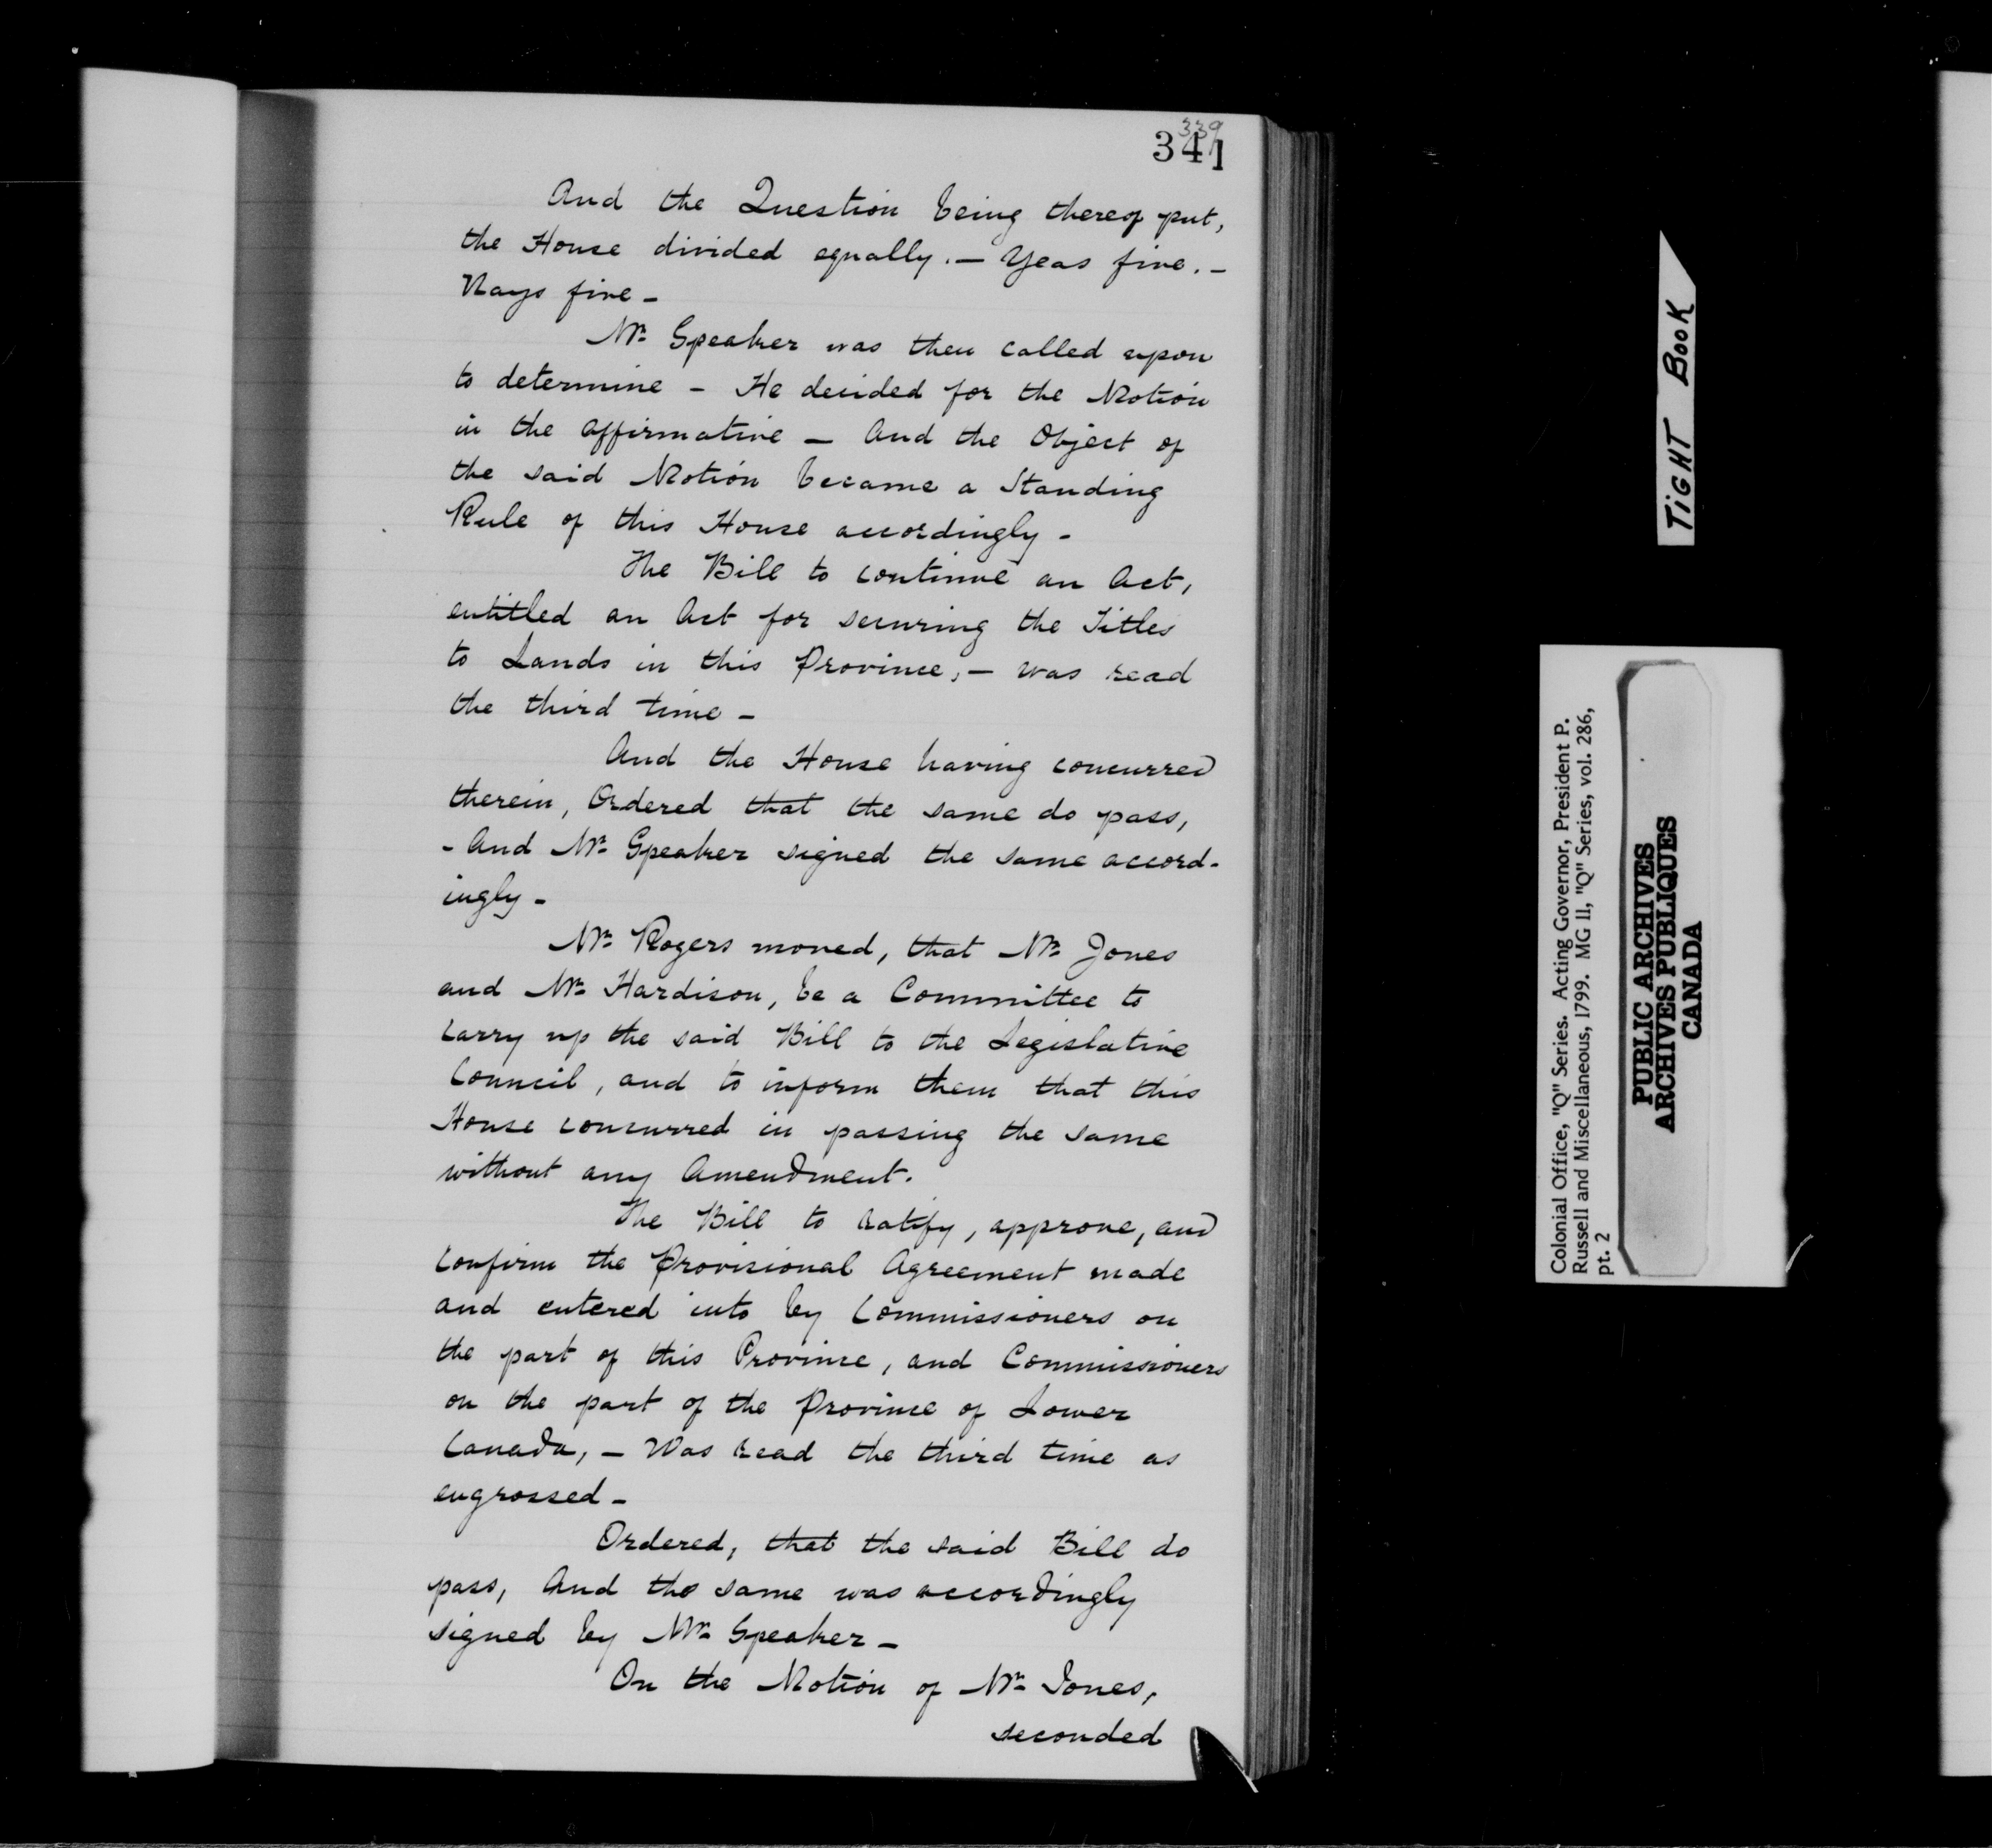 339
341
And the Question being thereof put,
the House divided equally. — Yeas five. —
Nays five —
Mr. Speaker was then called upon
to determine — He decided for the Motion
in the affirmative — And the Object of
the said Motion became a Standing
Rule of this House accordingly —
The Bill to continue an Act,
entitled an Act for securing the Titles
to Lands in this Province, — was read
the third time —
And the House having concurred
therein, Ordered that the same do pass,
- And Mr. Speaker signed the same accord-
ingly -
Mr. Rogers moved, that Mr. Jones
and Mr. Hardison, be a Committee to
carry up the said Bill to the Legislative
Council, and to inform them that this
House concurred in passing the same
without any Amendment.
The Bill to ratify, approve, and
confirm the Provisional Agreement made
and entered into by Commissioners on
the part of this Province, and Commissioners
on the part of the Province of Lower
Canada, — Was read the third time as
engrossed —
Ordered, that the said Bill do
pass, And the same was accordingly
signed by Mr. Speaker —
On the Motion of Mr. Jones,
seconded
TIGHT BOOK
Colonial Office, "Q" Series. Acting Governor, President P.
Russell and Miscellaneous, 1799. MG 11, "Q" Series, vol. 286,
pt. 2
PUBLIC ARCHIVES
ARCHIVES PUBLIQUES
CANADA